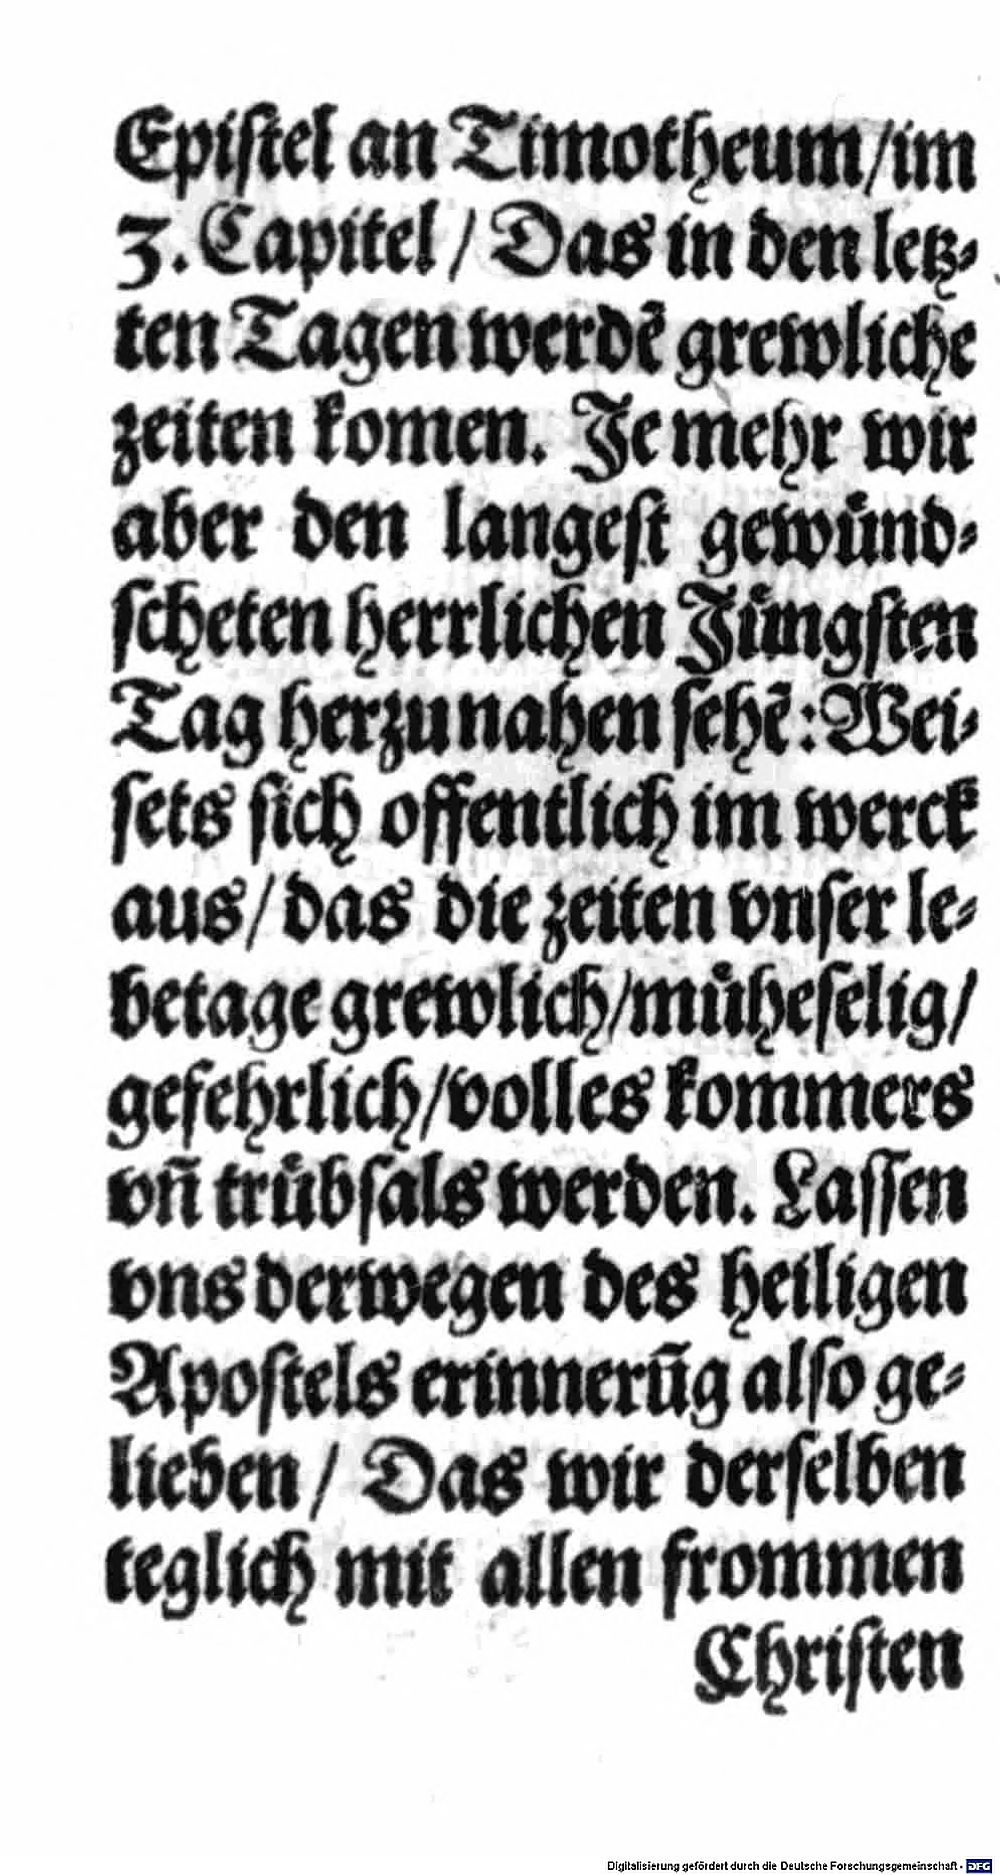 Epiſtel an Timotheum/im
3. Capitel / Das in den letz⸗
ten Tagen werdẽ grewliche
zeiten komen. Je mehr wir
aber den langeſt gewuͤnd⸗
ſcheten herrlichen Juͤngſten
Tag herzu nahen ſehẽ: Wei⸗
ſets ſich offentlich im werck
aus/ das die zeiten vnſer le⸗
betage grewlich/muͤheſelig/
gefehrlich/volles kommers
vñ truͤbſals werden. Laſſen
vns derwegen des heiligen
Apoſtels erinnerũg alſo ge⸗
lieben / Das wir derſelben
teglich mit allen frommen
Chriſten
Digitalisierung gefördert durch die Deutsche Forschungsgemeinschaft - DFG